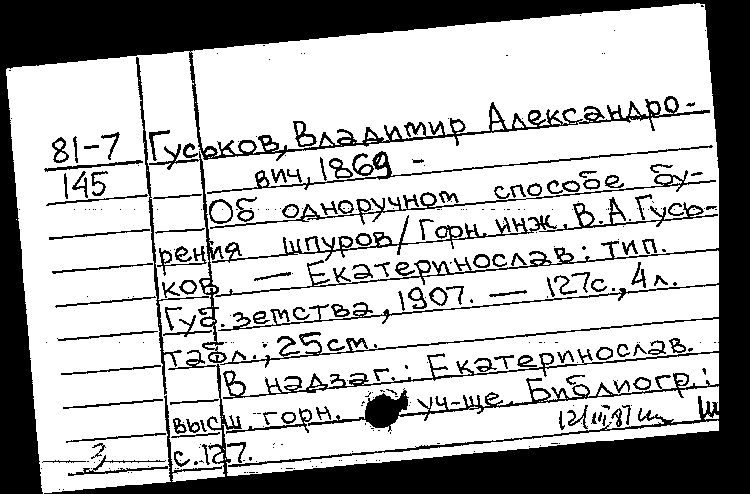 81-7
145
Гуськов, Владимир Александро-
вич, 1869 -
Об одноручном способе бу-
рения шпуров / Горн. инж. В. А. Гусь-
ков. — Екатеринослав: тип.
Губ. земства, 1907. — 127с., 4 л.
табл.; 25см.
В надзаг.: Екатеринослав.
высш. горн. уч-ще. Библиогр.:
с. 127.
3